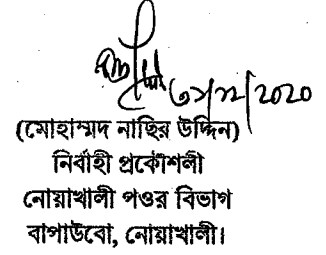 ৩১/১২/২০২০
(মোহাম্মদ নাছির উদ্দিন)
নির্বাহী প্রকৌশলী
নোয়াখালী পওর বিভাগ
বাপাউবো, নোয়াখালী।